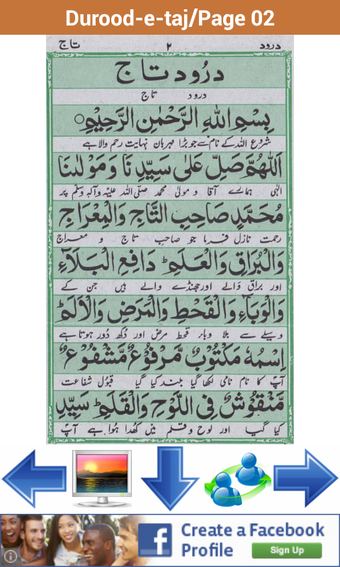 Durood-e-taj/Page 02
درود ۲ تاج
درود تاج
درود تاج
بِسْمِ اللّٰهِ الرَّحْمٰنِ الرَّحِيْمِ
شروع اللہ کے نام سے جو بڑا مہربان نہایت رحم والا ہے
اَللّٰهُمَّ صَلِّ عَلٰى سَيِّدِنَا وَمَوْلٰنَا
الٰہی ہمارے آقا و مولیٰ محمد صلی اللہ علیہ وآلہ وسلم پر
مُحَمَّدٍ صَاحِبِ التَّاجِ وَالْمِعْرَاجِ
رحمت نازل فرما جو صاحب تاج و معراج
وَالْبُرَاقِ وَالْعَلَمِ دَافِعِ الْبَلَآءِ
اور براق والے اور جھنڈے والے ہیں جن کے
وَالْوَبَآءِ وَالْقَحْطِ وَالْمَرَضِ وَالْاَلَمِ
وسیلے سے بلا وبا، قحط مرض اور دکھ دور ہوتا ہے
اِسْمُهٗ مَكْتُوْبٌ مَّرْفُوْعٌ مَّشْفُوْعٌ
آپ کا نام نامی لکھا گیا بلند کیا گیا قبول شفاعت
مَّنْقُوْشٌ فِى اللَّوْحِ وَالْقَلَمِ سَيِّدِ
کیا گیا اور لوح و قلم میں کھدا ہوا ہے آپ
Create a Facebook
Profile
Sign Up